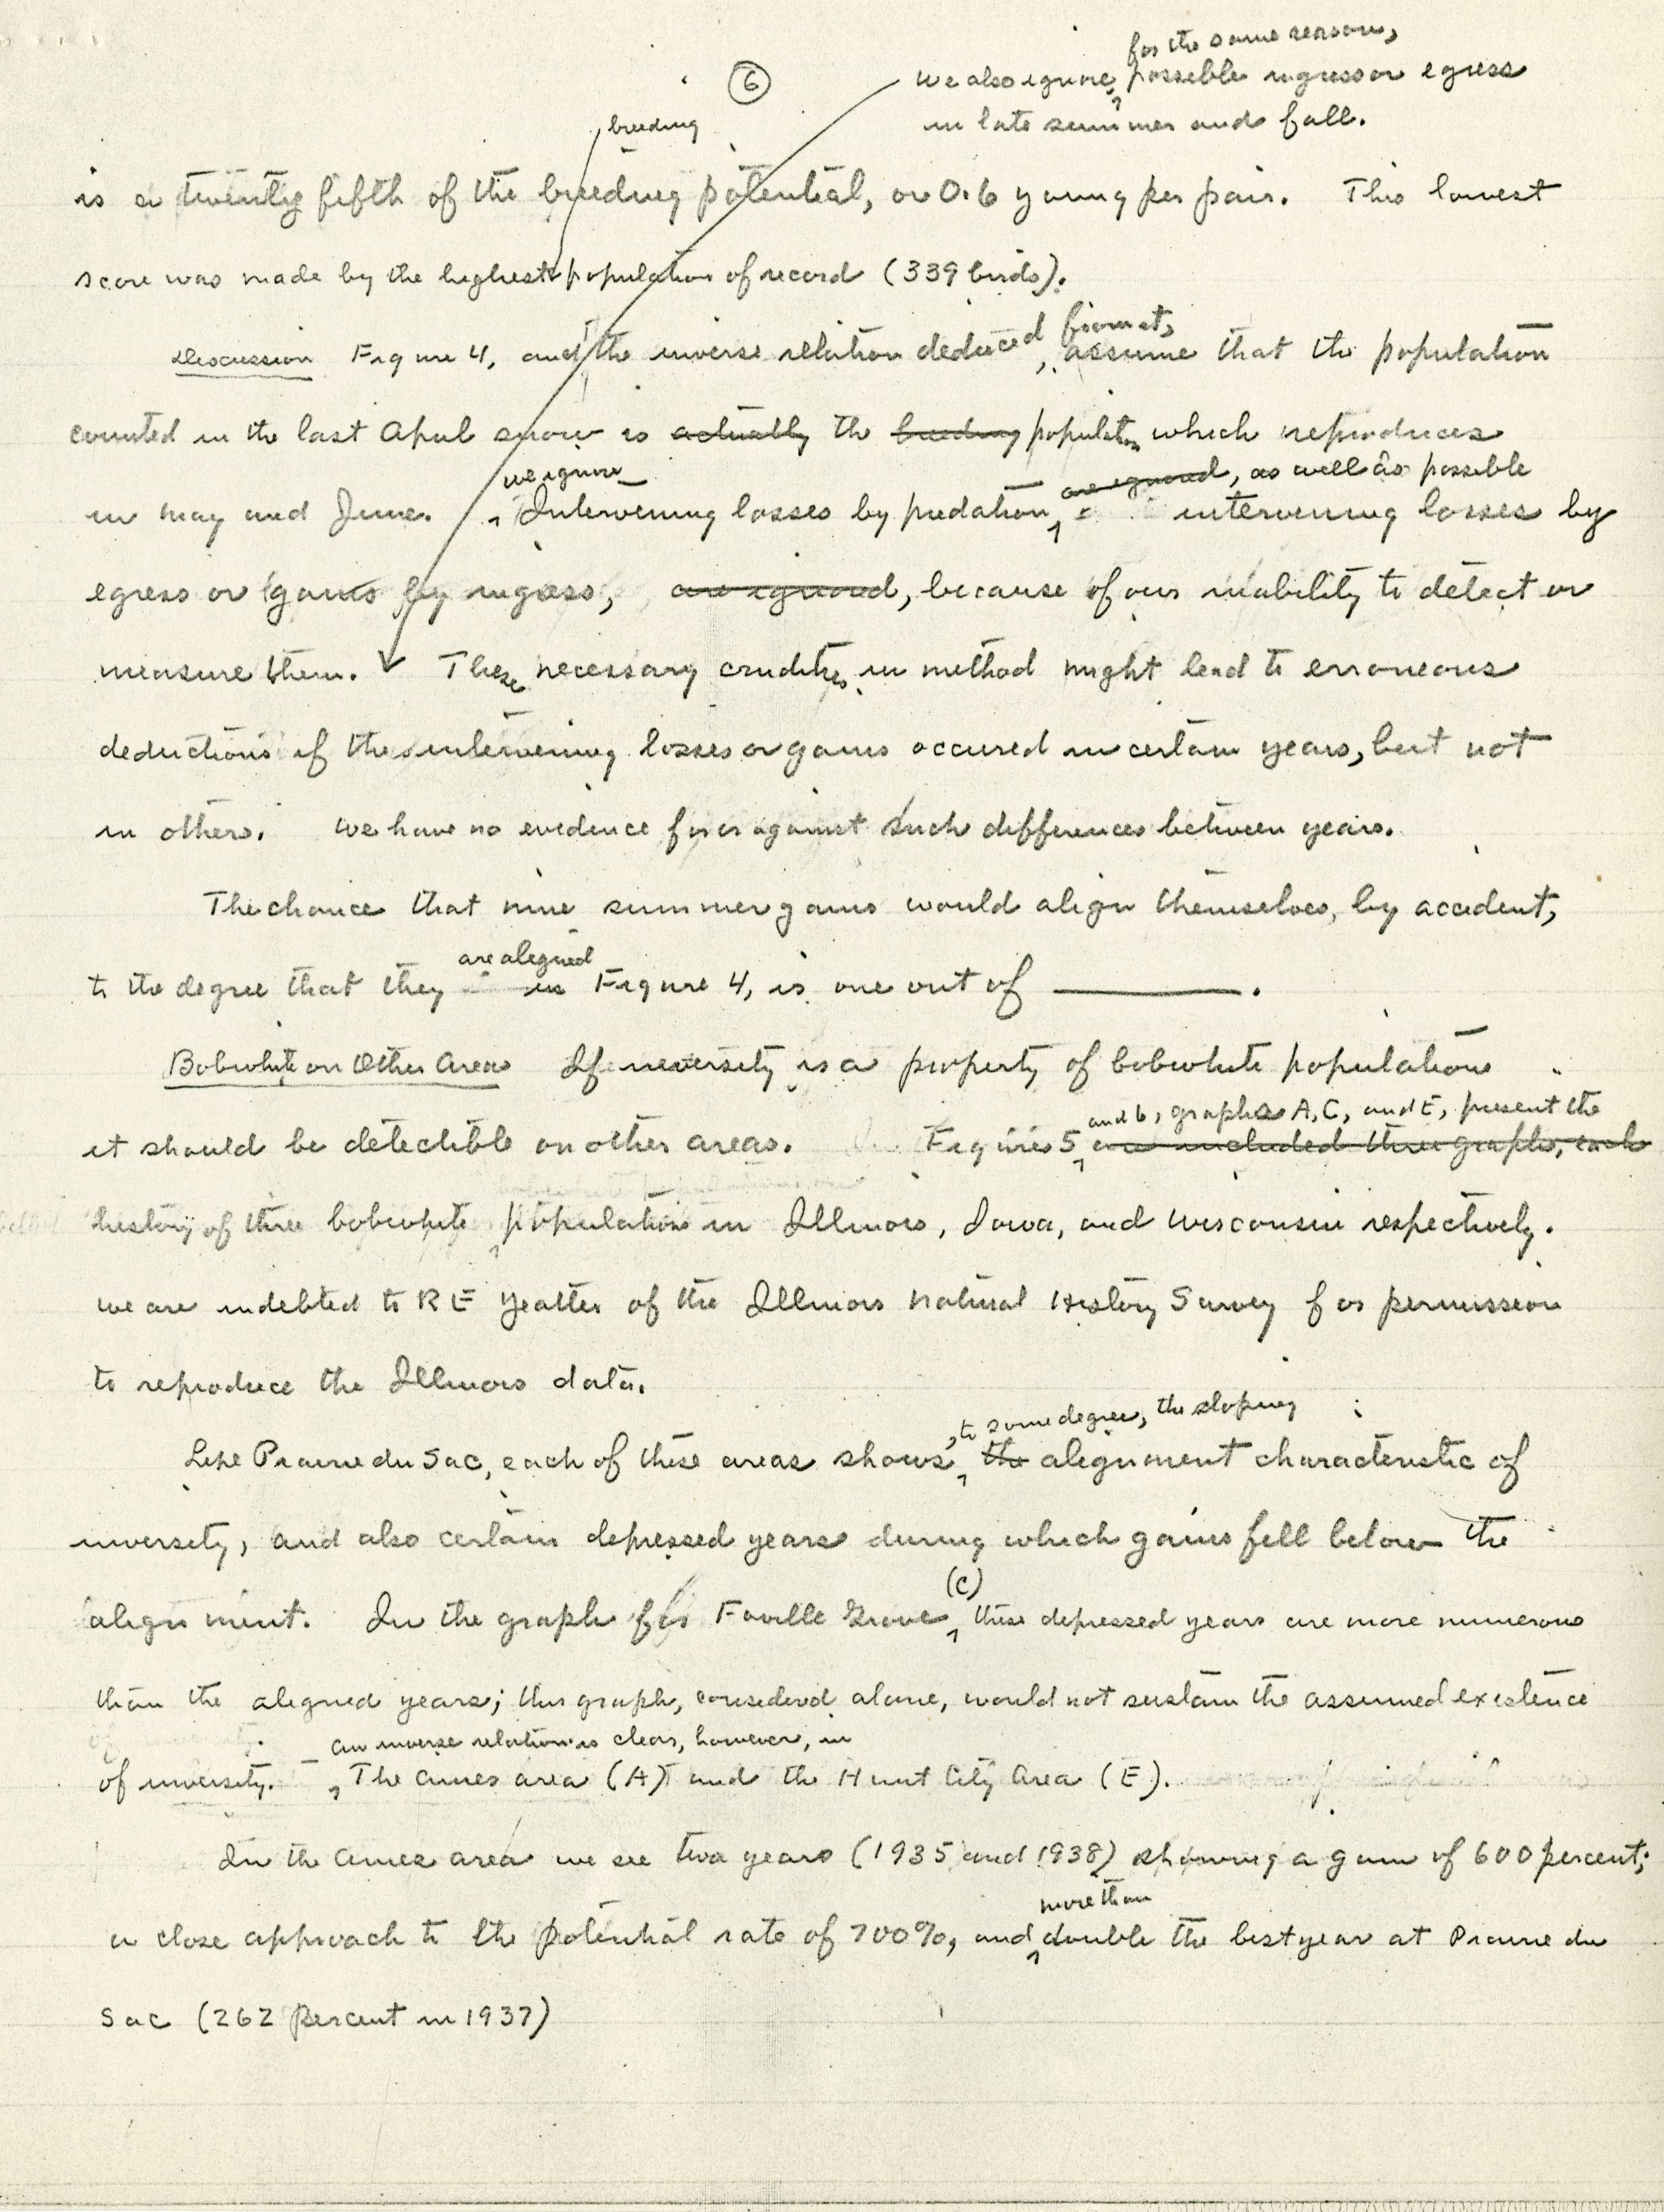 for the same reason,
6 We also ignore possible ingress or egress
breeding in late summer and fall.
is a twenty fifth of the breeding potential, or 0.6 young per pair. This lowest
score was made by the highest population of record (339 birds).
from it,
Discussion Figure 4, and the inverse relation deduced, assume that the population
counted in the last April snow is actually the breeding population which reproduces
we ignore are ignored, as well as possible
in May and June. Intervening losses by predation, intervening losses by
egress or gains by ingress, are ignored, because of our inability to detect or
measure them. These necessary crudities in method might lead to erroneous
deductions if the intervening losses or gains occured in certain years, but not
in others. We have no evidence for or against such differences between years.
The chance that nine summer gains would align themselves, by accident,
are aligned
to the degree that they in Figure 4, is one out of ______.
Bobwhite on Other Areas If inversity is a property of bobwhite populations
and 6, graphs A, C, and E, present the
it should be detectible on other areas. Figures 5 are included three graphs, each
history of three bobwhite populations in Illinois, Iowa, and Wisconsin respectively.
We are indebted to R E Yeatter of the Illinois Natural History Survey for permission
to reproduce the Illinois data.
, to some degree, the sloping
Like Prairie du Sac, each of these areas shows the alignment characteristic of
inversity, and also certain depressed years during which gains fell below the
(C)
alignment. In the graph for Faville Grove these depressed years are more numerous
than the aligned years; this graph, considered alone, would not sustain the assumed existence
an inverse relation is clear, however, in
of inversity. The Ames area (A) and the Hunt City Area (E).
In the Ames area we see two years (1935 and 1938) showing a gain of 600 percent;
more than
a close approach to the potential rate of 700%, and double the best year at Prairie du
Sac (262 percent in 1937)